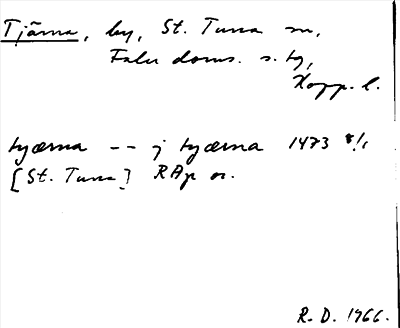 Tjärna, by, St. Tuna sn,
Falu doms. s. tg,
Kopp. l.
tyærna -- j tyærna 1473 8/1
[St. Tuna] RAp or.
R. D. 1966.